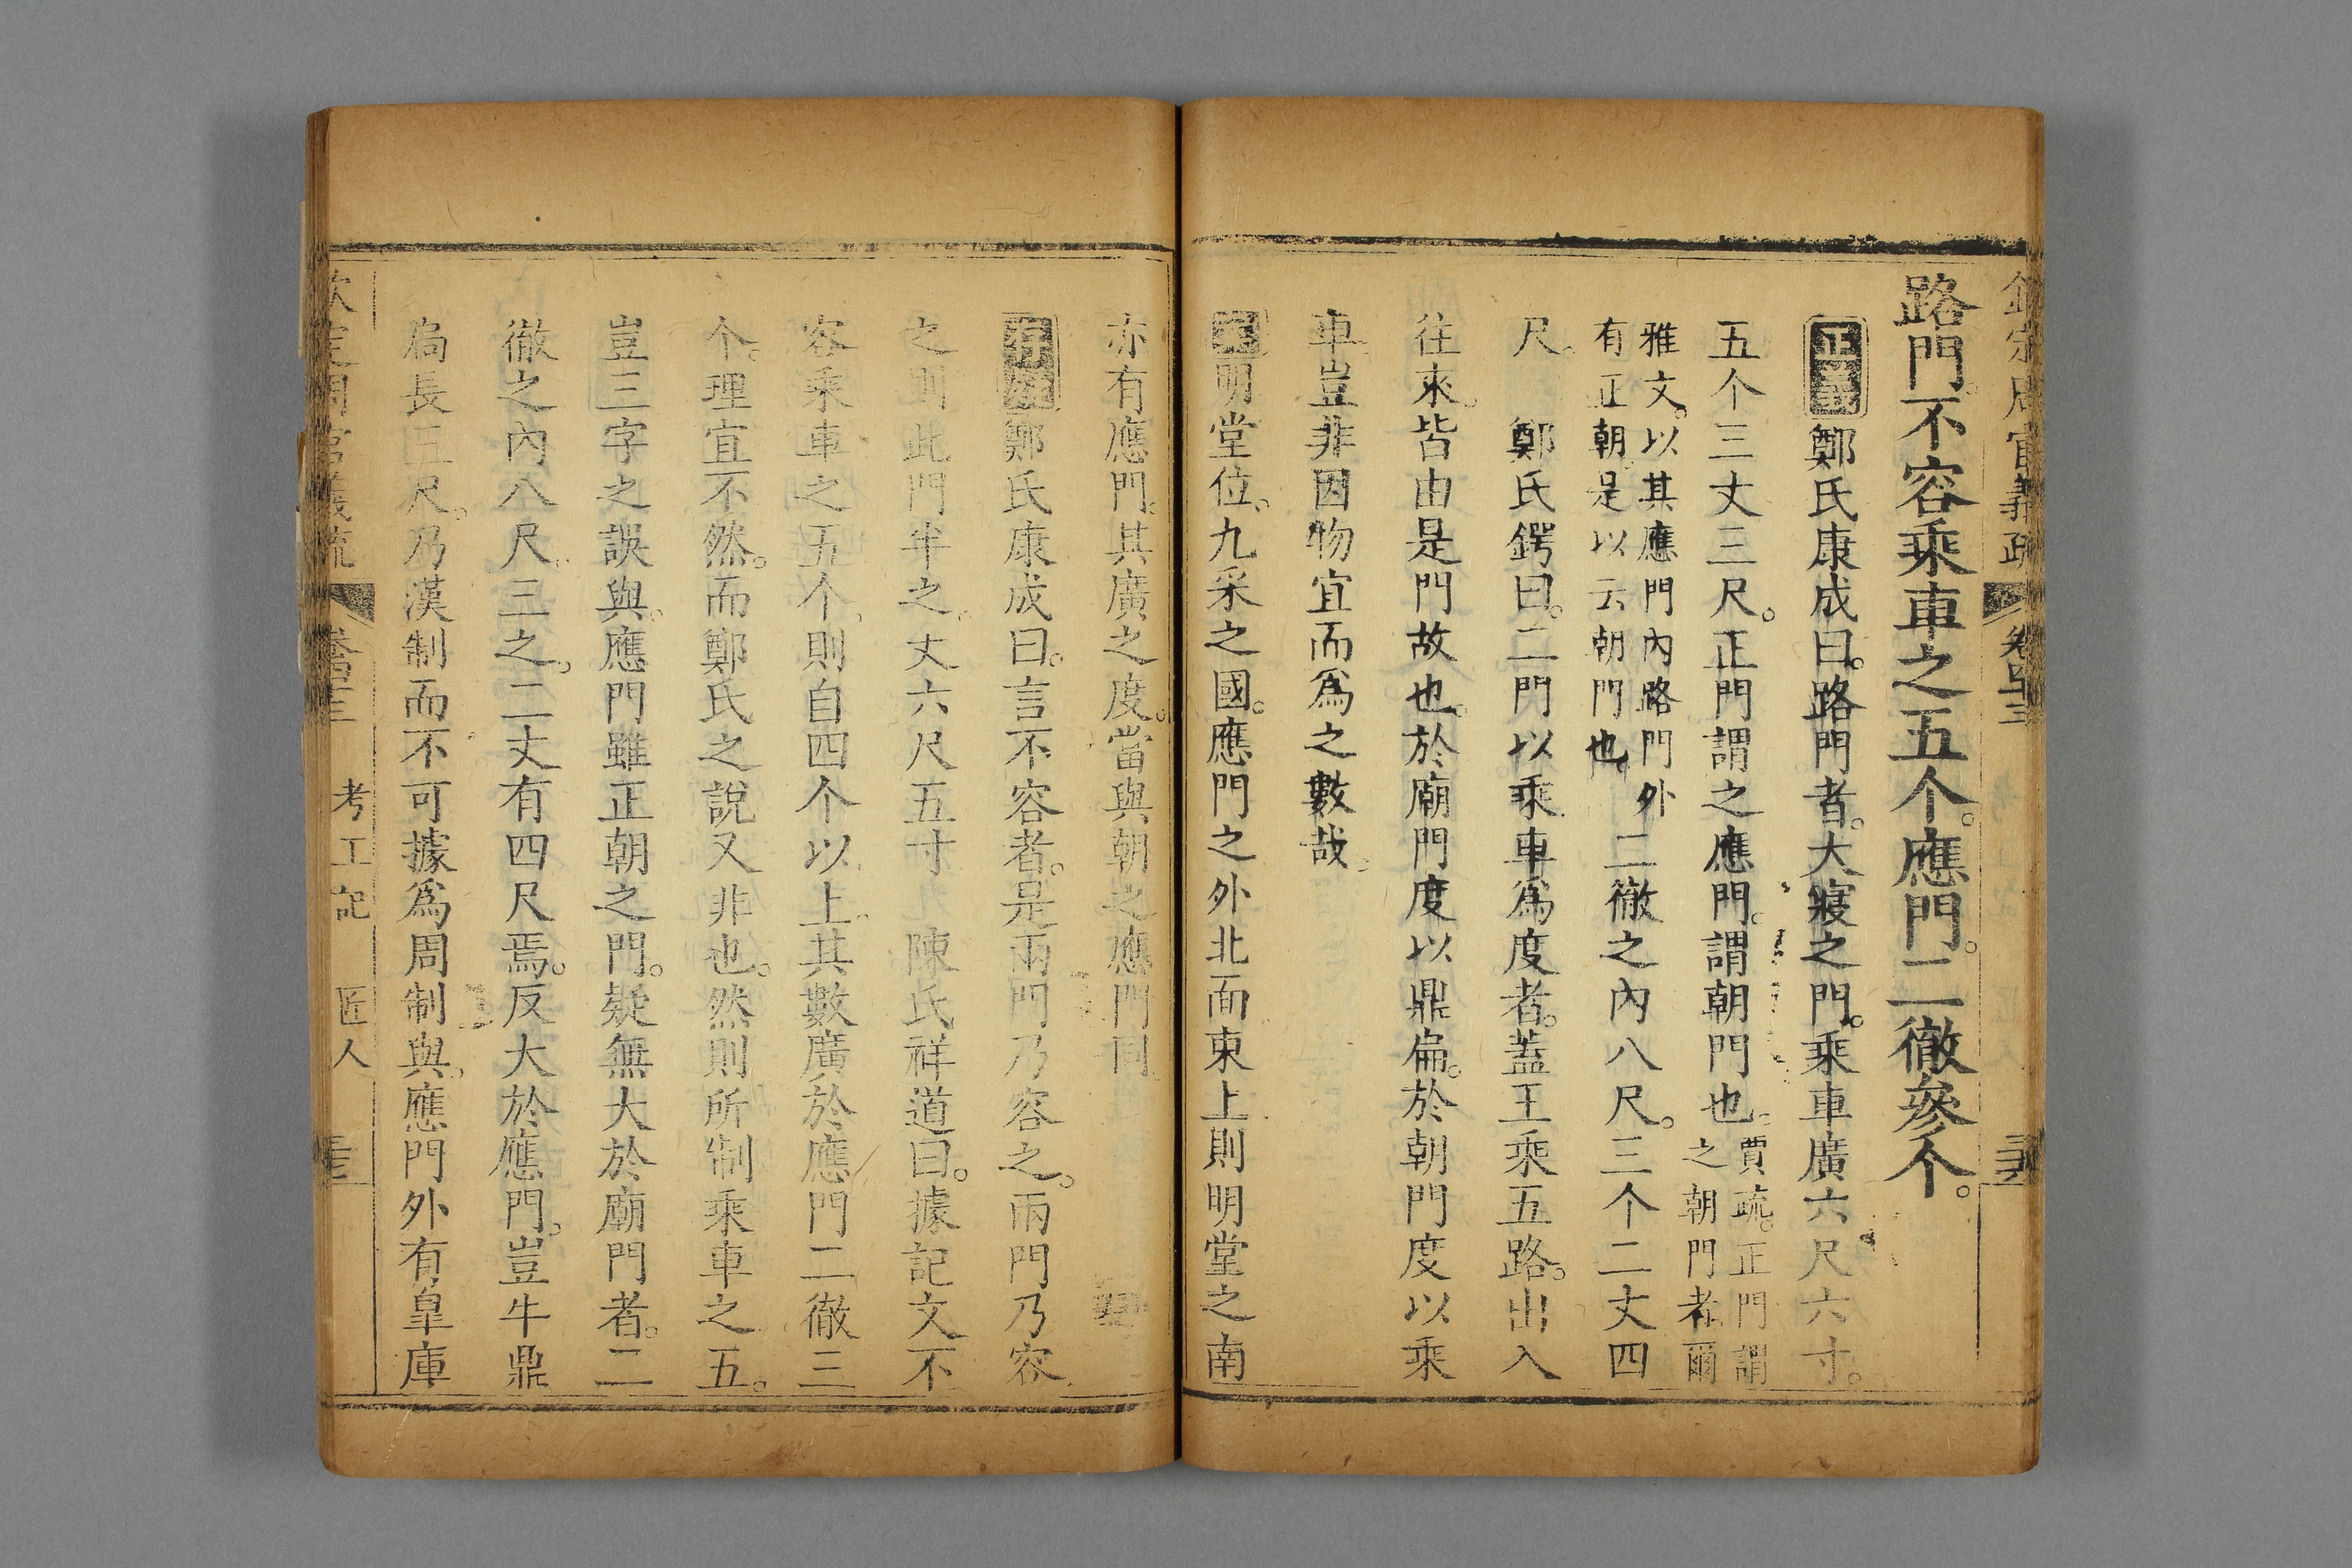 欽定周官義疏 卷四十三
路門不容乘車之五个。應門二徹參个。
正義鄭氏康成曰。路門者。大寢之門。乘車廣六尺六寸。
五个三丈三尺。正門謂之應門。謂朝門也。賈疏。正門謂之朝門者。爾
雅文。以其應門內路門外有正朝。是以云朝門也。二徹之內八尺。三个二丈四
尺。 鄭氏鍔曰。二門以乘車為度者。蓋王乘五路。出入
往來。皆由是門故也。於廟門度以鼎扃。於朝門度以乘
車。豈非因物宜而為之數哉。
明堂位。九采之國。應門之外北面東上。則明堂之南
亦有應門。其廣之度。當與朝之應門同。
鄭氏康成曰。言不容者。是兩門乃容之。兩門乃容
之。則此門半之。丈六尺五寸 陳氏祥道曰。據記文不
容乘車之五个。則自四个以上。其數廣於應門二徹三
个。理宜不然。而鄭氏之說又非也。然則所制乘車之五。
豈三字之誤與。應門雖正朝之門。疑無大於廟門者。二
徹之內八尺。三之。二丈有四尺焉。反大於應門。豈牛鼎
扃長三尺。乃漢制而不可據為周制與。應門外有皐庫
欽定周官義疏 卷四十三 考工記 匠人